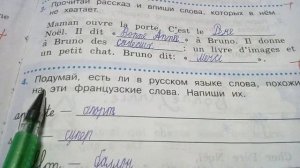 2. Прочитай рассказ и впиши слова, которых в нём
не хватает.
Maman ouvre la porte. C'est le Père
Noël. Il dit « Bonne Année » à Bruno. Il donne
à Bruno des cadeaux : un livre d'images et
un petit chat. Bruno dit: « Merci ».
4. Подумай, есть ли в русском языке слова, похожи
на эти французские слова. Напиши их.
— спорт
— супер
— балон